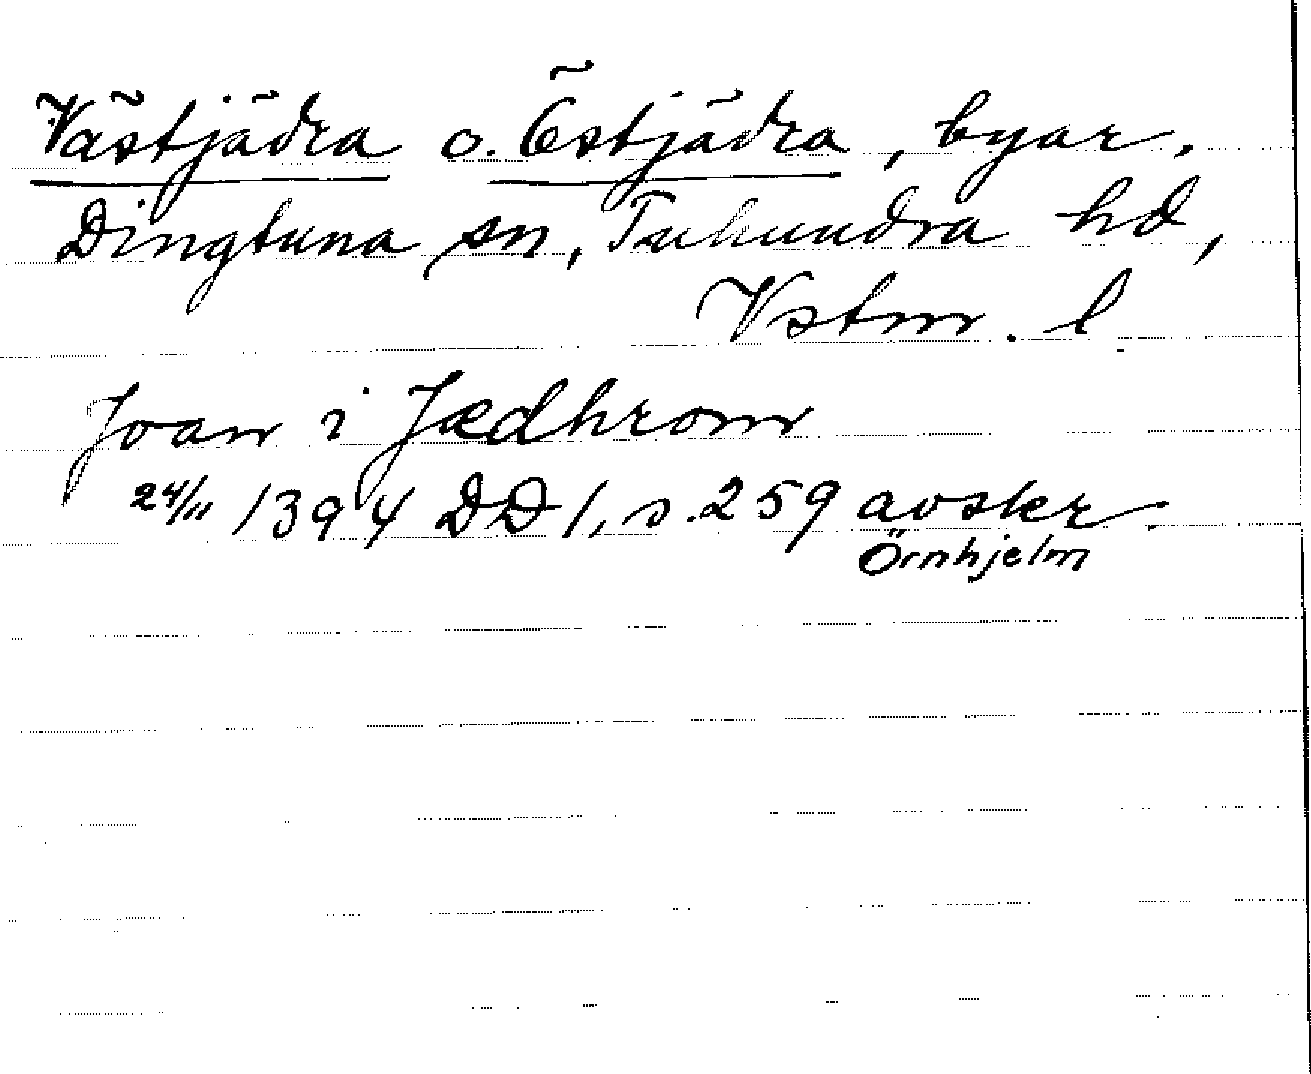 Västjädra o. Östjädra, byar,
Dingtuna sn, Tuhundra hd,
Vstm. l
Joan i Jædhrom
24/11 1394 DD 1, s. 259 avskr.
Örnhjelm